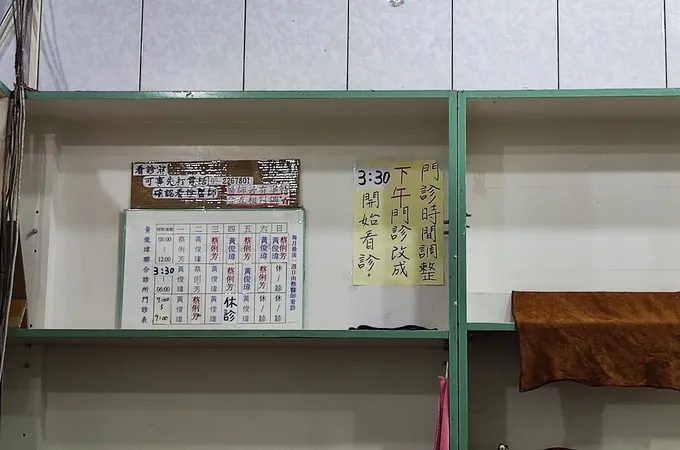 看診前
可事先打電話 2267801
確認看診醫師
門診時間調整
下午門診改成
3:30
開始看診.
每月最後一週日由蔡醫師看診
時間/星期 一 二 三 四 五 六 日
08:00 | 12:00 蔡俐芳 黃俊瑋 蔡俐芳 黃俊瑋 蔡俐芳 黃俊瑋 黃俊瑋 蔡俐芳
3:30 | 06:00 黃俊瑋 蔡俐芳 黃俊瑋 蔡俐芳 黃俊瑋 蔡俐芳 休/診
7:00 9:00 黃俊瑋 蔡俐芳 黃俊瑋 休診 黃俊瑋 休/診 休/診
黃俊瑋聯合診所門診表